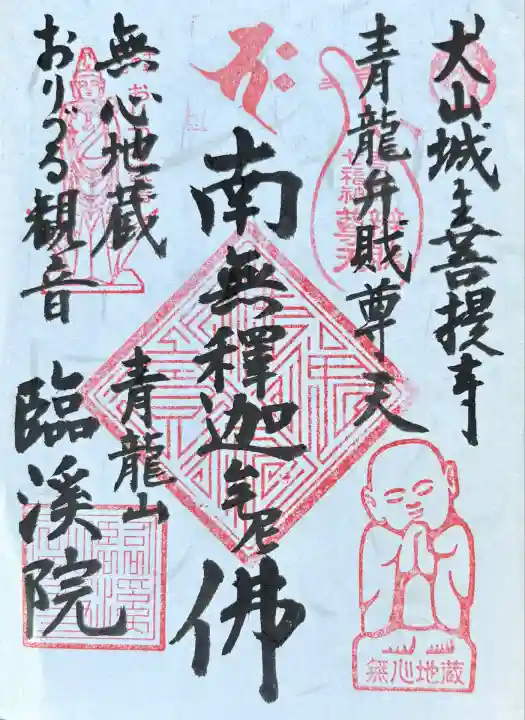 犬山城主菩提寺
青龍弁財尊天
南無釋迦牟尼佛
無心地蔵
おりづる観音
青龍山
臨溪院
無心地蔵